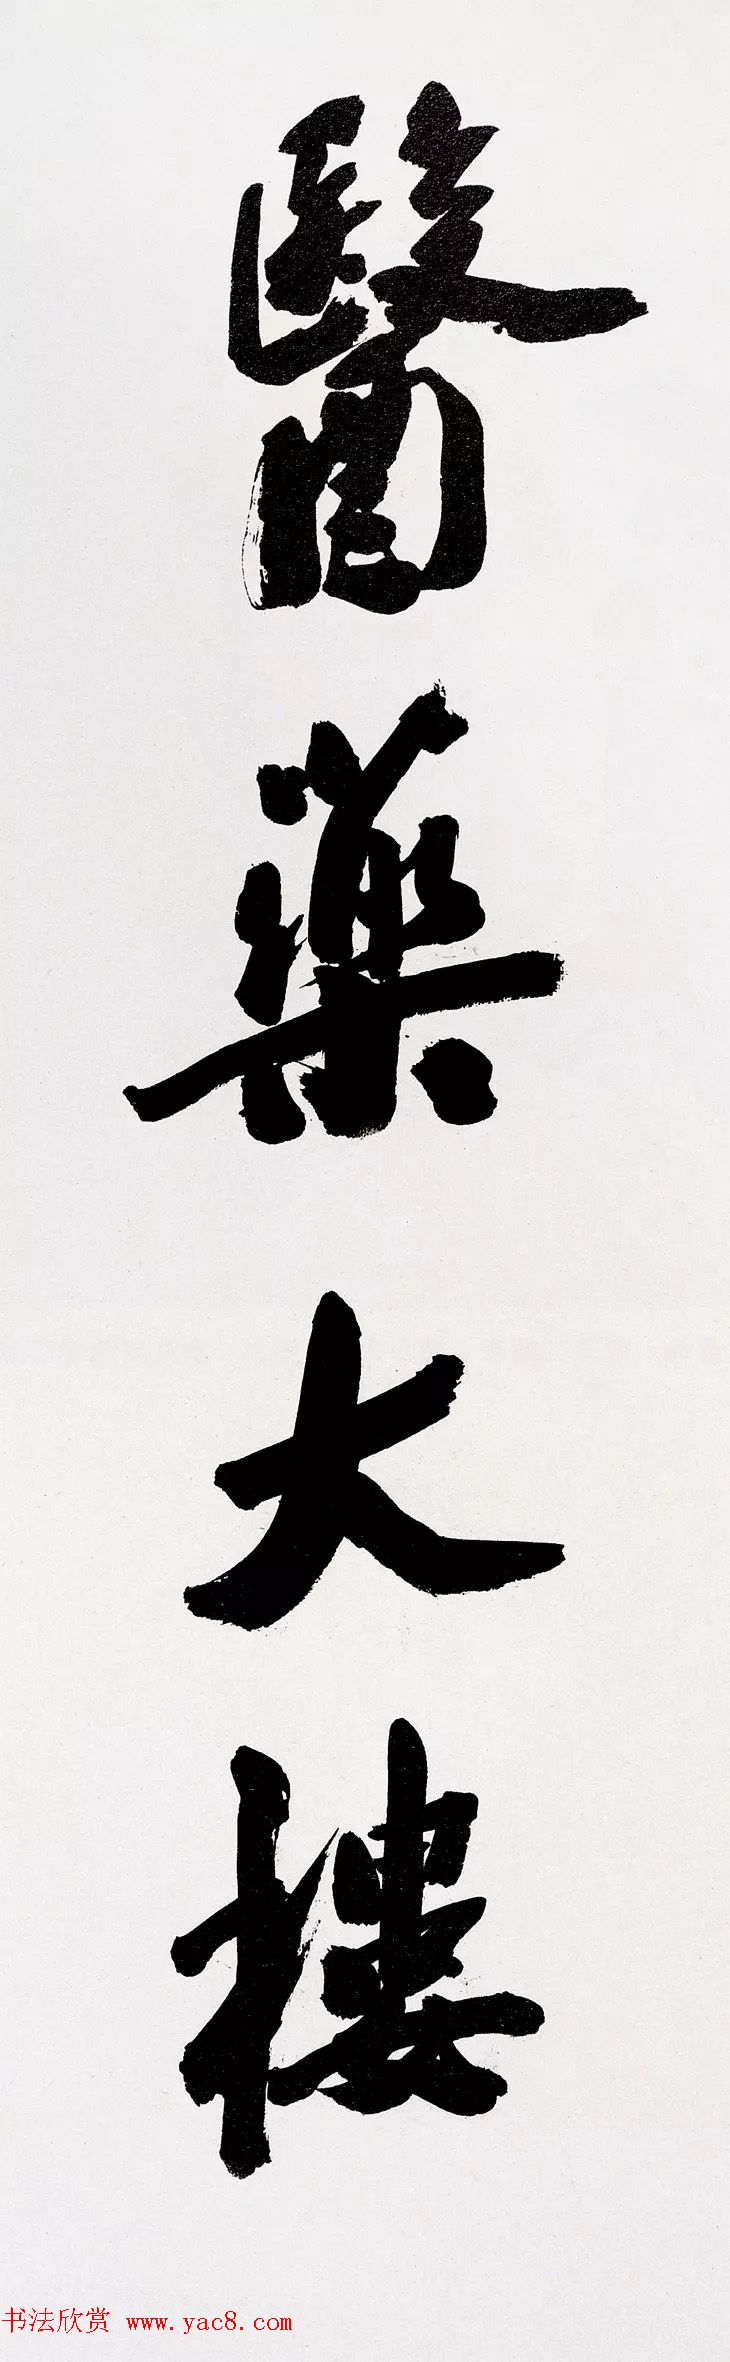 醫藥大樓
书法欣赏 www.yac8.com